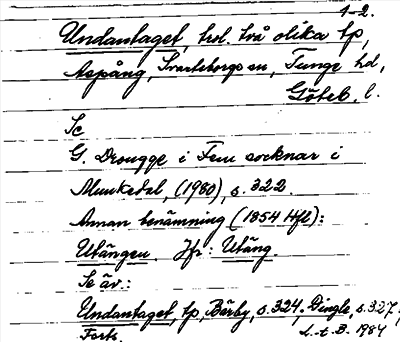 1-2.
Undantaget, trol. två olika tp,
Aspång, Svarteborgs sn, Tunge hd,
Göteb. l.
Se
G. Drougge i Fem socknar i
Munkedal, (1980), s. 322.
Annan benämning (1854 Hfl):
Utängen. Jfr: Utäng.
Se äv.:
Undantaget, tp, Bärby, s. 324, Dingle, s. 327,
Forts. L-t. B. 1984